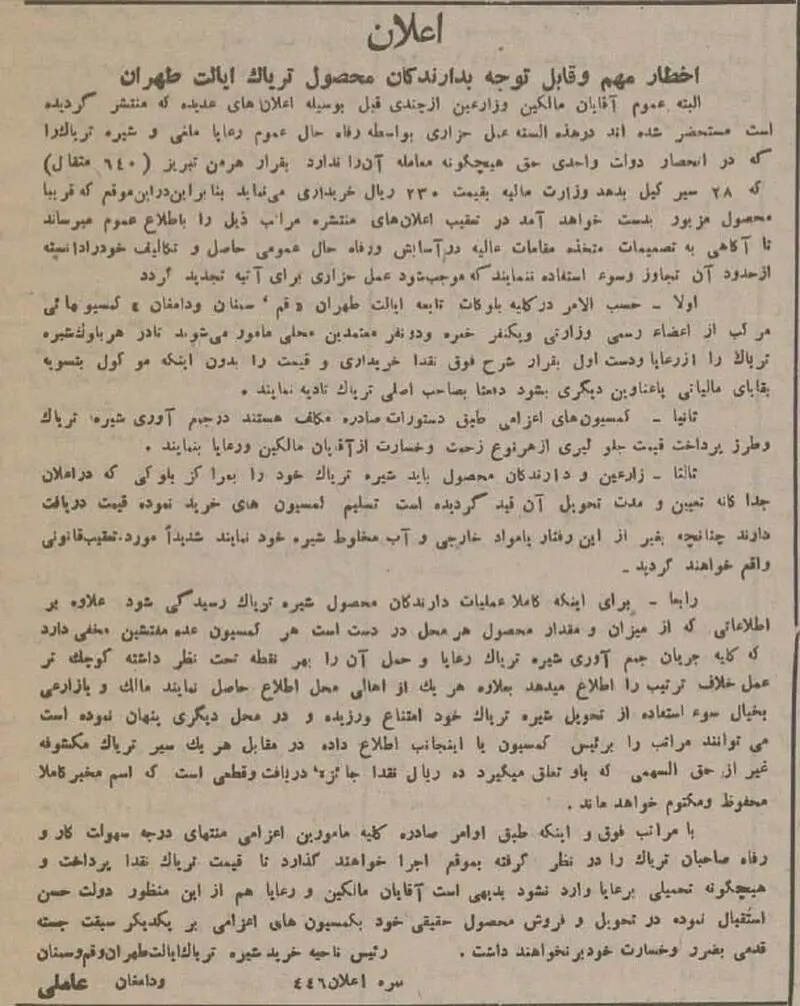 اعلان
اخطار مهم وقابل توجه بدارندگان محصول تریاك ایالت طهران
البته عموم آقایان مالكین وزارعین ازچندی قبل بوسیله اعلان های عدیده كه منتشر گردیده
است مستحضر شده اند درهذه السنه عمل حزاری بواسطه رفاه حال عموم رعایا ملغی و شیره تریاك را
كه در انحصار دولت واحدی حق هیچگونه معامله آن را ندارد بقرار هرمن تبریز ( ٦٤٠ مثقال )
كه ٢٨ سیر كیل بدهد وزارت مالیه بقیمت ٢٣٠ ریال خریداری می نماید بنا براین در این موقع كه قریبا
محصول مزبور بدست خواهد آمد در تعقیب اعلان های منتشره مراتب ذیل را باطلاع عموم میرساند
تا آگاهی به تصمیمات متخذه مقامات عالیه در آسایش ورفاه حال عمومی حاصل و تكالیف خودرادانسته
ازحدود آن تجاوز وسوء استفاده ننمایند كه موجب شود عمل حزاری برای آتیه تجدید گردد
اولا ـ حسب الامر دركلیه بلوكات تابعه ایالت طهران « قم ٬ سمنان ودامغان » كمیسیو نهائی
مركب از اعضاء رسمی وزارتی ویكنفر خبره ودونفر معتمدین محلی مامور می شوند تادر هربلوك شیره
تریاك را ازرعایا ودست اول بقرار شرح فوق نقدا خریداری و قیمت را بدون اینكه مو كول بتسویه
بقایای مالیاتی یاعناوین دیگری بشود دفعتا بصاحب اصلی تریاك تادیه نمایند .
ثانیا ـ كمسیون های اعزامی طبق دستورات صادره مكلف هستند درجمع آوری شیره تریاك
وطرز پرداخت قیمت جلو گیری ازهرنوع زحمت وخسارت ازآقایان مالكین ورعایا بنمایند .
ثالثا ـ زارعین و دارندگان محصول باید شیره تریاك خود را بمرا كز بلو كی كه دراعلان
جدا گانه تعیین و مدت تحویل آن قید گردیده است تسلیم كمسیون های خرید نموده قیمت دریافت
دارند چنانچه بغیر از این رفتار یامواد خارجی و آب مخلوط شیره خود نمایند شدیداً مورد تعقیب قانونی
واقع خواهند گردید ـ
رابعا ـ برای اینكه كاملا عملیات دارندگان محصول شیره تریاك رسیدگی شود علاوه بر
اطلاعاتی كه از میزان و مقدار محصول هر محل در دست است هر كمسیون عده مفتشین مخفی دارد
كه كلیه جریان جمع آوری شیره تریاك رعایا و حمل آن را بهر نقطه تحت نظر داشته كوچك تر
عمل خلاف ترتیب را اطلاع میدهد بعلاوه هر یك از اهالی محل اطلاع حاصل نمایند مالك و یازارعی
بخیال سوء استفاده از تحویل شیره تریاك خود امتناع ورزیده و در محل دیگری پنهان نموده است
می توانند مراتب را برئیس كمسیون یا اینجانب اطلاع داده در مقابل هر یك سیر تریاك مكشوفه
غیر از حق السهمی كه باو تعلق میگیرد ده ریال نقدا جا ئزه دریافت وقطعی است كه اسم مخبر كاملا
محفوظ ومكتوم خواهد ماند .
با مراتب فوق و اینكه طبق اوامر صادره كلیه مامورین اعزامی منتهای درجه سهولت كار و
رفاه صاحبان تریاك را در نظر گرفته بموقع اجرا خواهند گذارد تا قیمت تریاك نقدا پرداخت و
هیچگونه تحمیلی برعایا وارد نشود بدیهی است آقایان مالكین و رعایا هم از این منظور دولت حسن
استقبال نموده در تحویل و فروش محصول حقیقی خود بكمسیون های اعزامی بر یكدیگر سبقت جسته
قدمی بضرر وخسارت خودبرنخواهند داشت . رئیس ناحیه خرید شیره تریاك ایالت طهران وقم وسمنان
نمره اعلان ٤٤٦ ودامغان عاملی